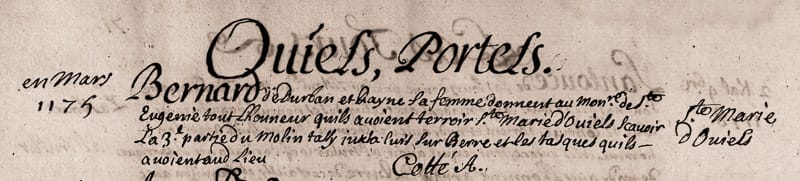 Quiels, Portels.
en Mars
1175
Bernard d'Durban et Rayne sa femme donnent au monr. de Ste
Eugenie tout Lhonneur quils avoient terroir Ste Marie d'Ouiels scavoir
La 3e. partie du Molin tally juxta luis sur Berre et les tasques quils
avoient aud Lieu
Cotté A.
Ste Marie
d'Ouiels